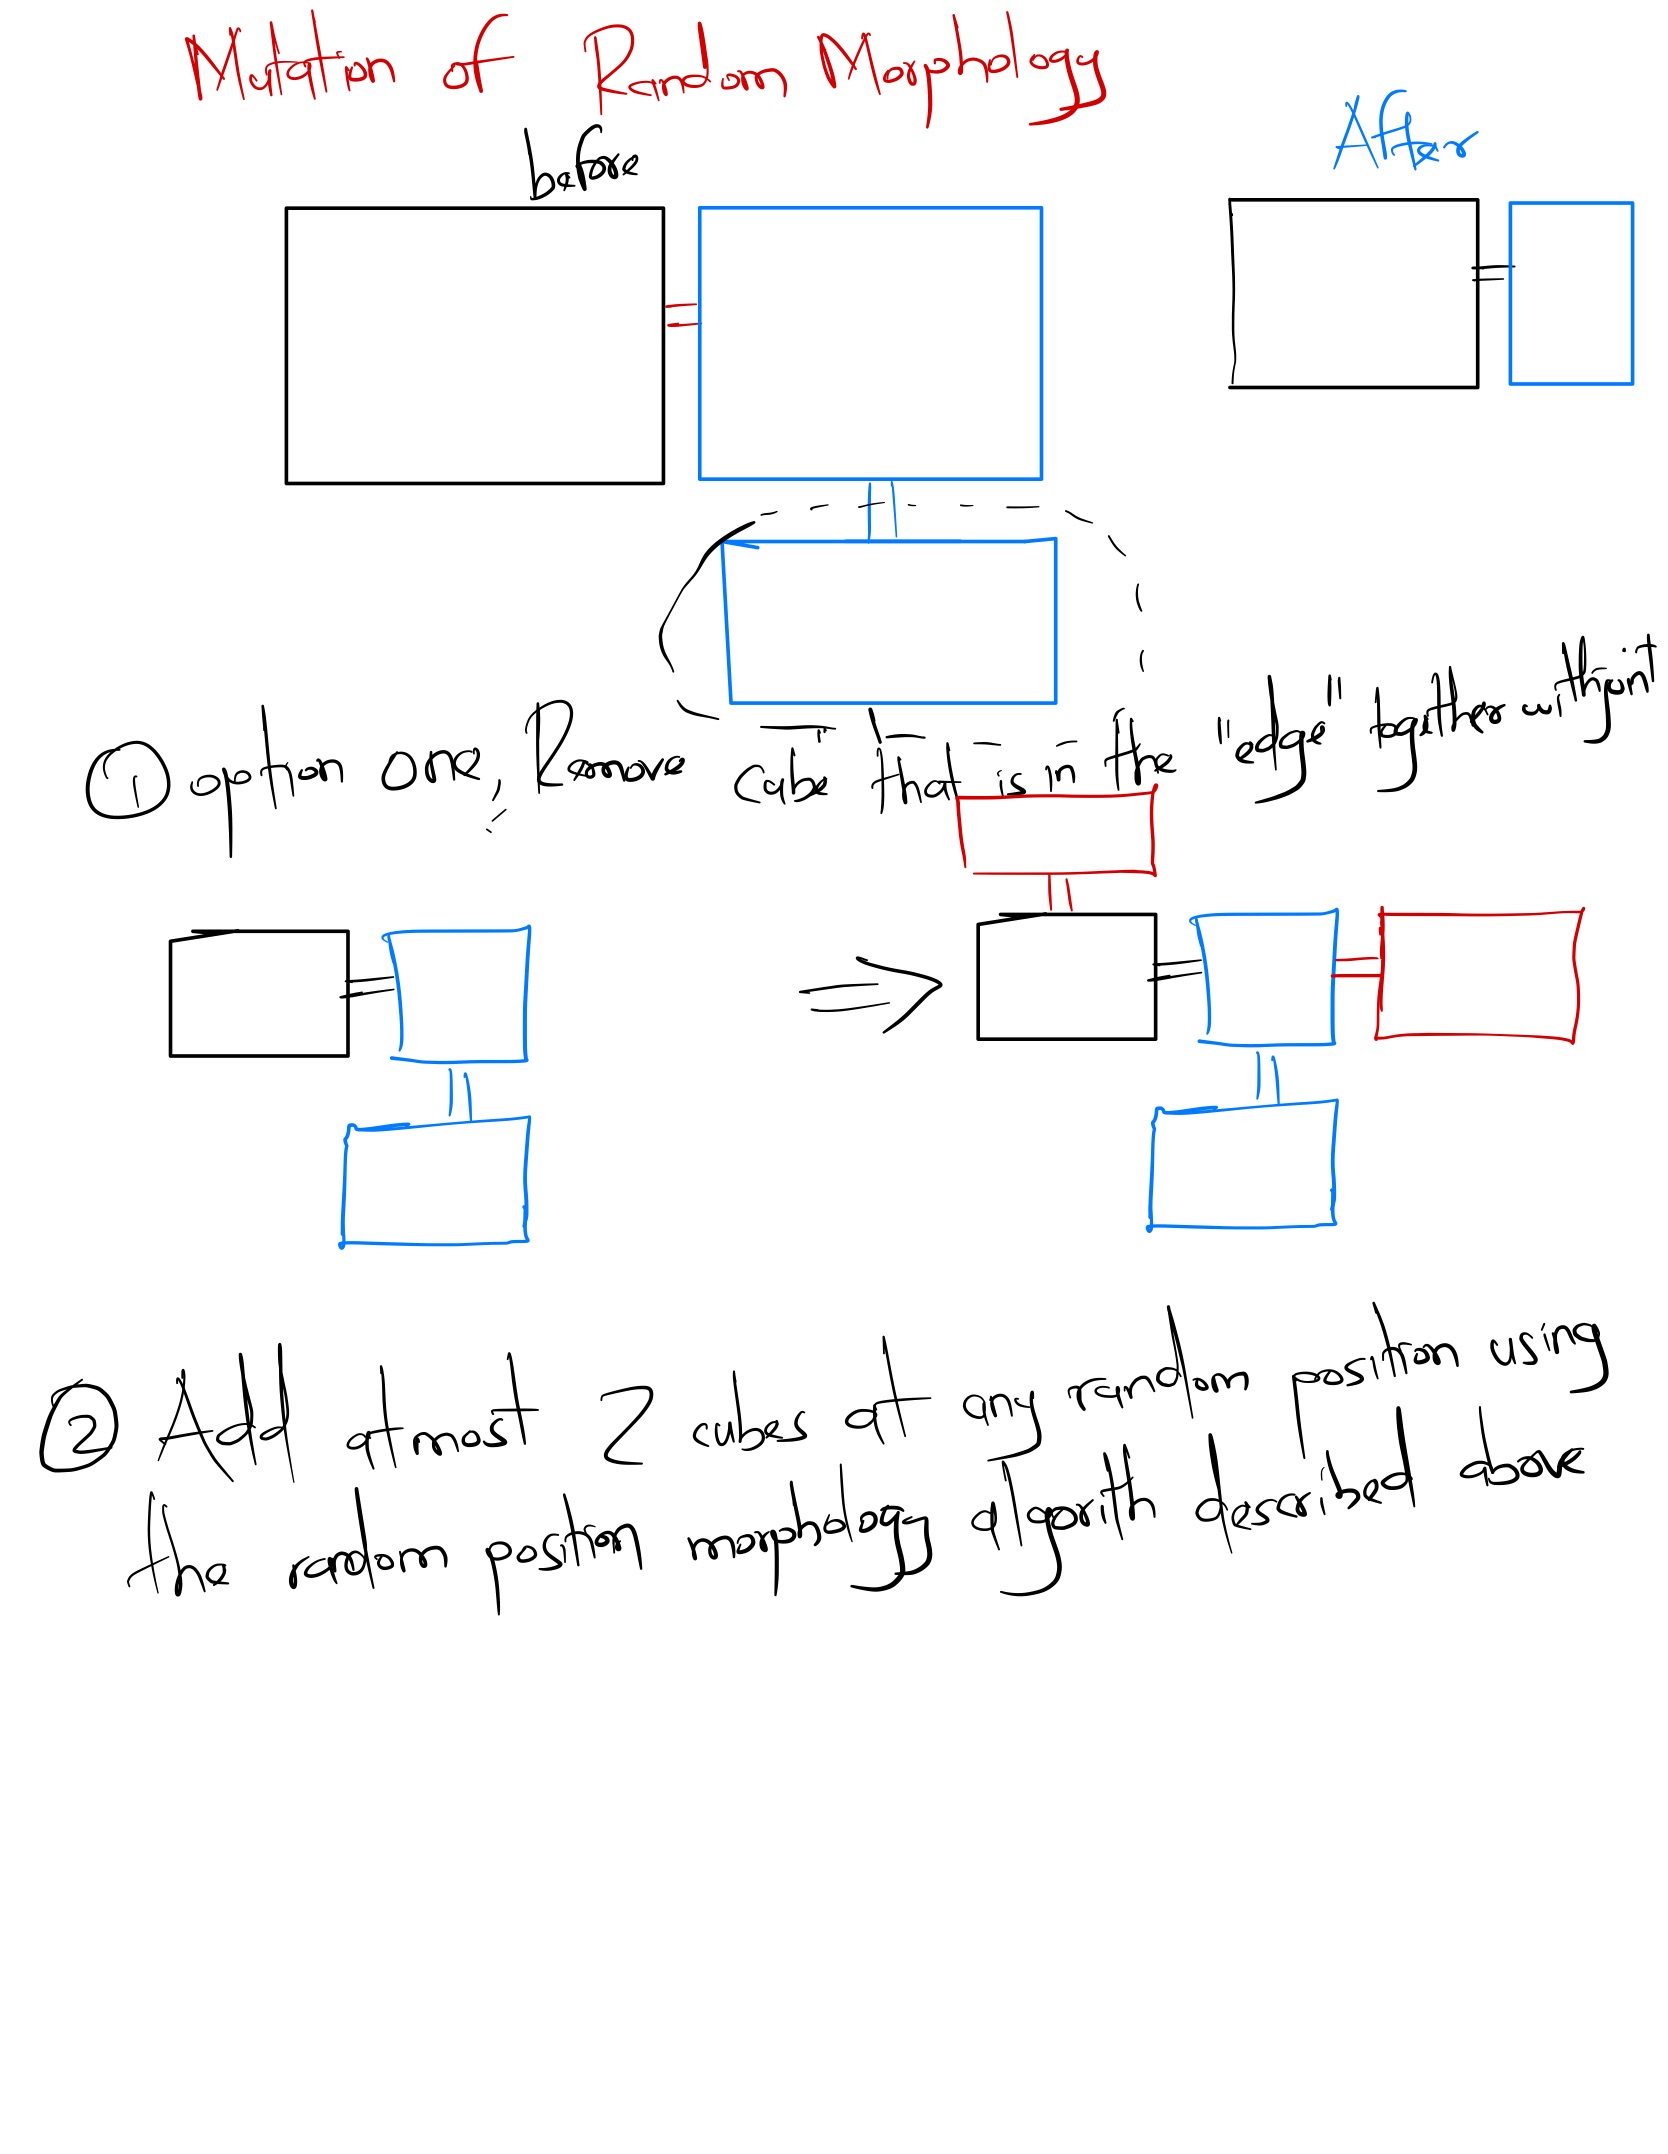 Mutation of Random Morphology
before
After
① option one, Remove cube that is in the "edge" together with joint
② Add atmost 2 cubes at any random position using
the random position morphology algorith described above